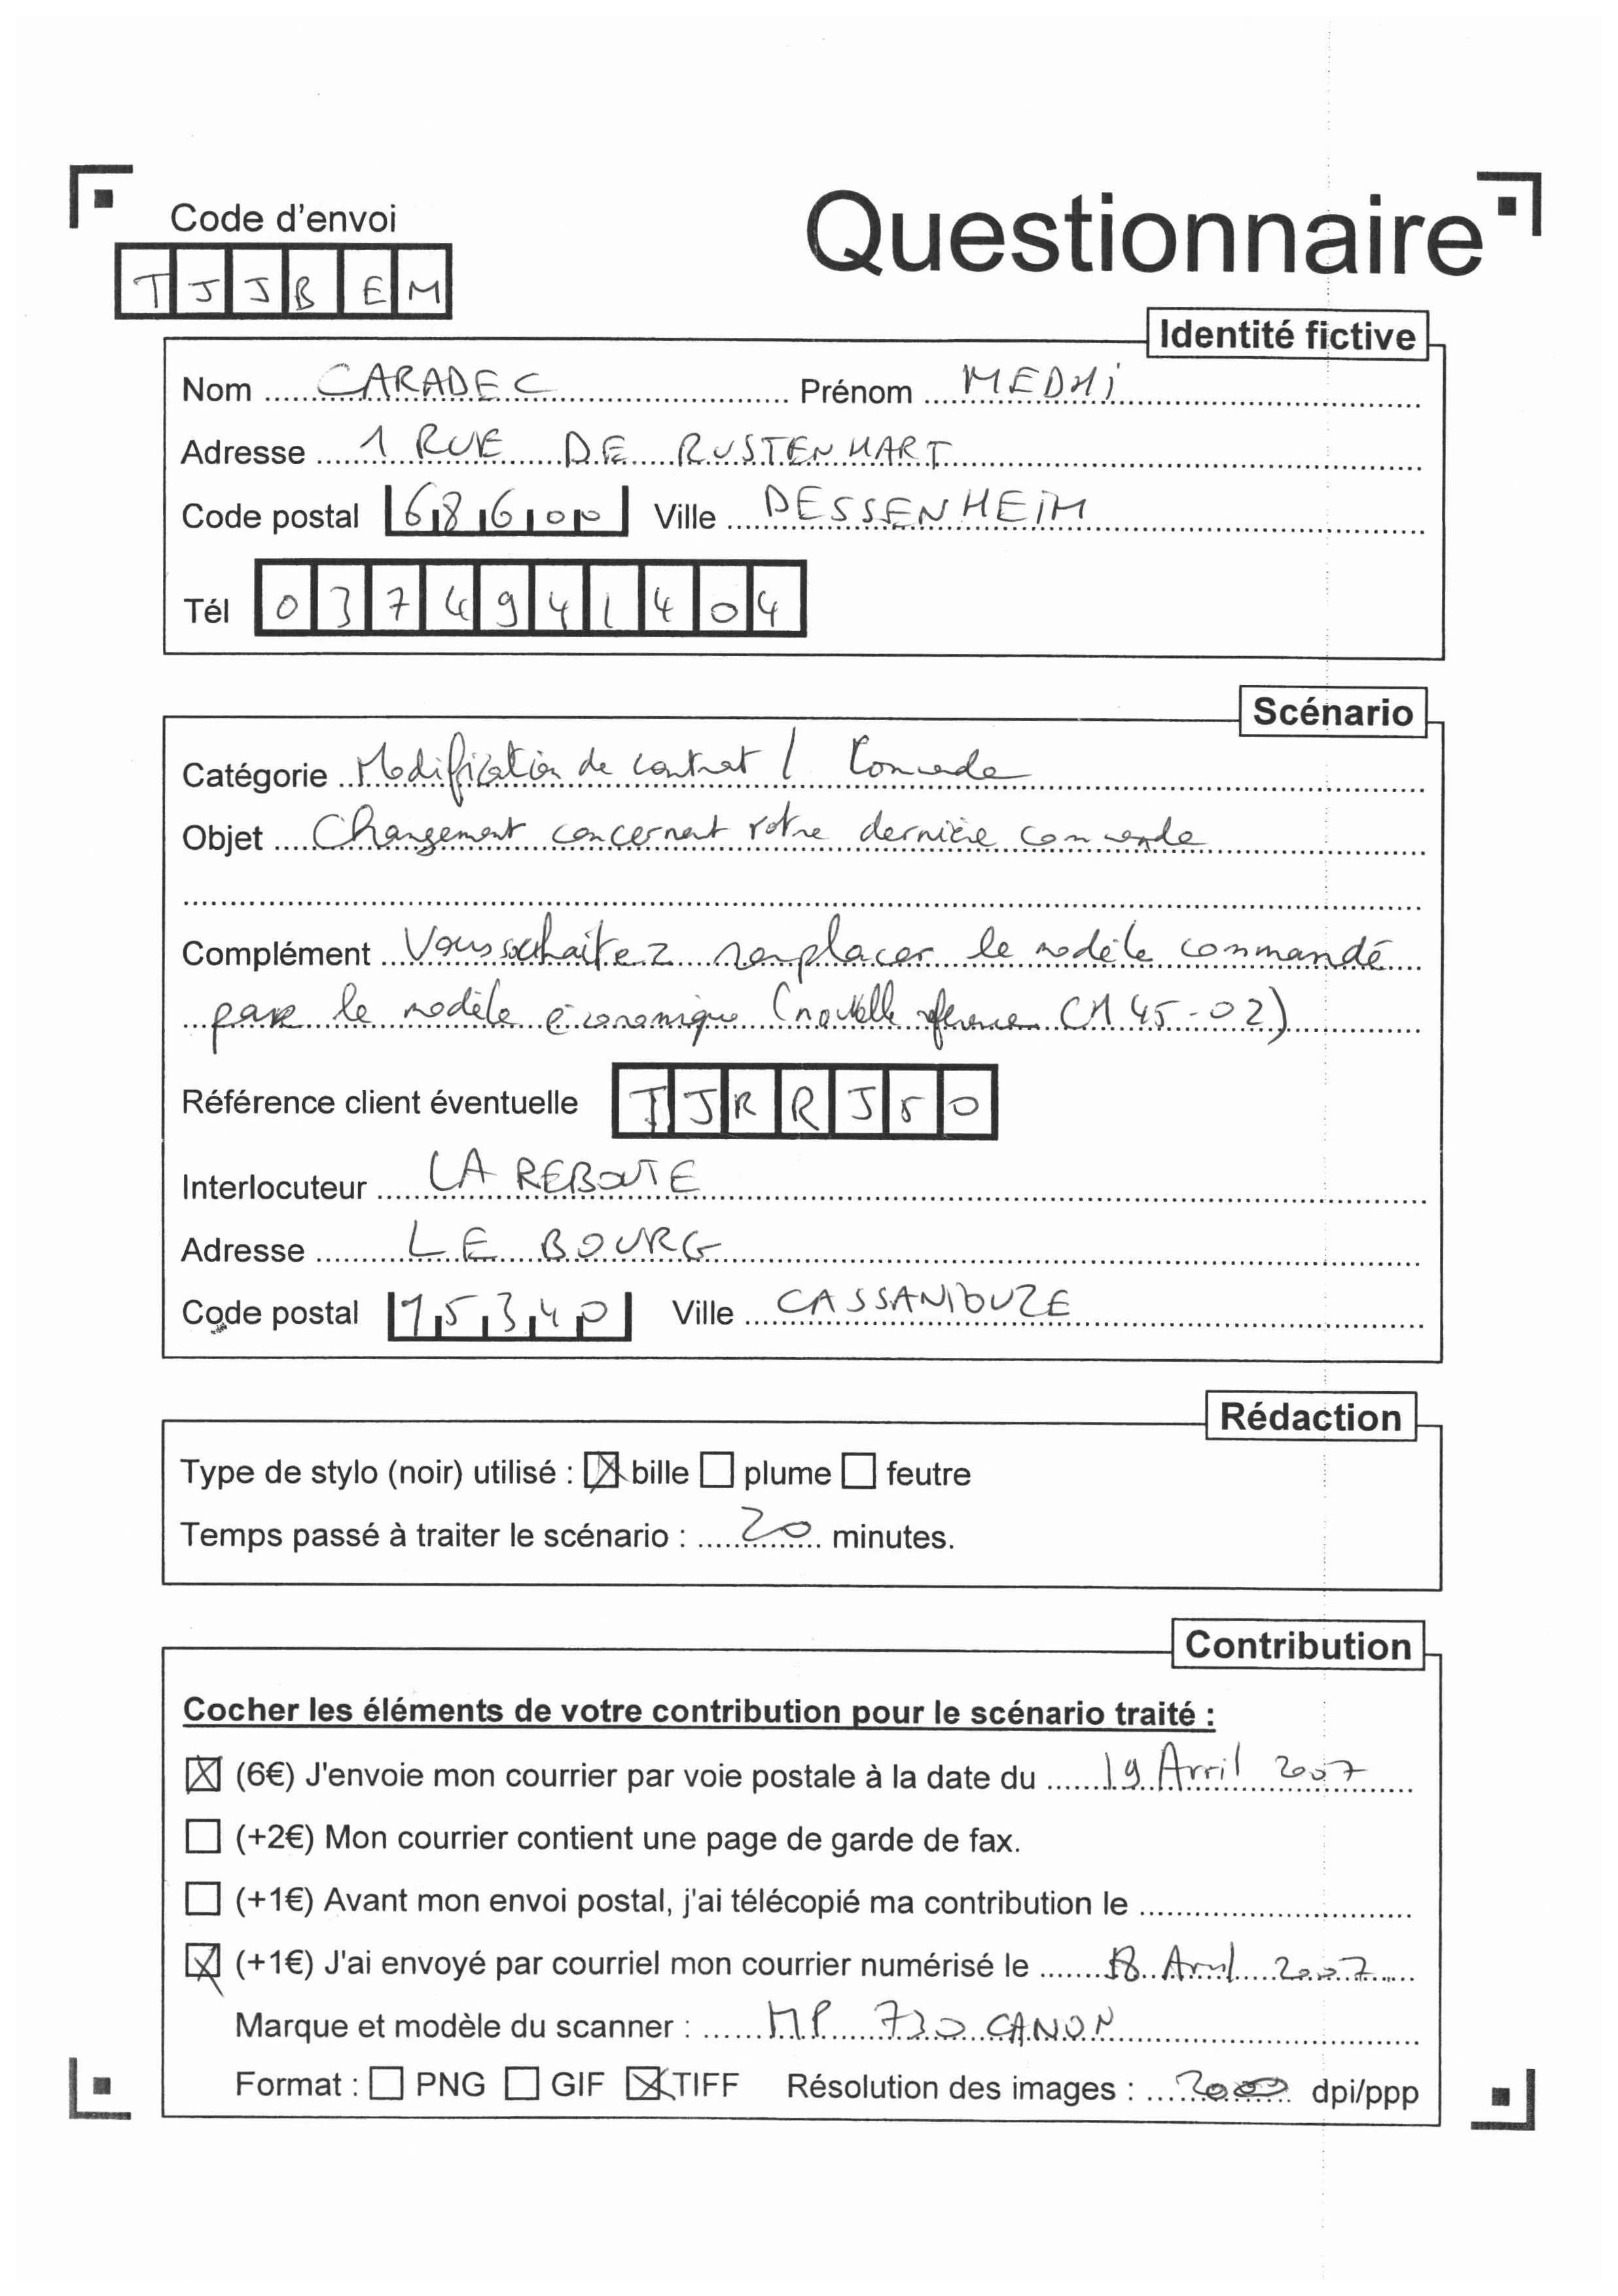 Code d'envoi
Questionnaire
TJJBEM
Identité fictive
Nom CARADEC Prénom MEDHi
Adresse 1 RUE DE RUSTENHART
Code postal 68600 Ville DESSENHEIM
Tél 0374941404
Scénario
Catégorie Modification de contrat / Commande
Objet Changement concernant votre dernière commande
Complément Vous souhaitez remplacer le modèle commandé
par le modèle économique (nouvelle référence CM 45-02)
Référence client éventuelle TJRRJ50
Interlocuteur LA REBOUTE
Adresse LE BOURG
Code postal 15340 Ville CASSANIOUZE
Rédaction
Type de stylo (noir) utilisé : ☒ bille ☐ plume ☐ feutre
Temps passé à traiter le scénario : 20 minutes.
Contribution
Cocher les éléments de votre contribution pour le scénario traité :
☒ (6€) J'envoie mon courrier par voie postale à la date du 19 Avril 2007
☐ (+2€) Mon courrier contient une page de garde de fax.
☐ (+1€) Avant mon envoi postal, j'ai télécopié ma contribution le
☒ (+1€) J'ai envoyé par courriel mon courrier numérisé le 18 Avril 2007
Marque et modèle du scanner : MP 730 CANON
Format : ☐ PNG ☐ GIF ☒ TIFF Résolution des images : dpi/ppp